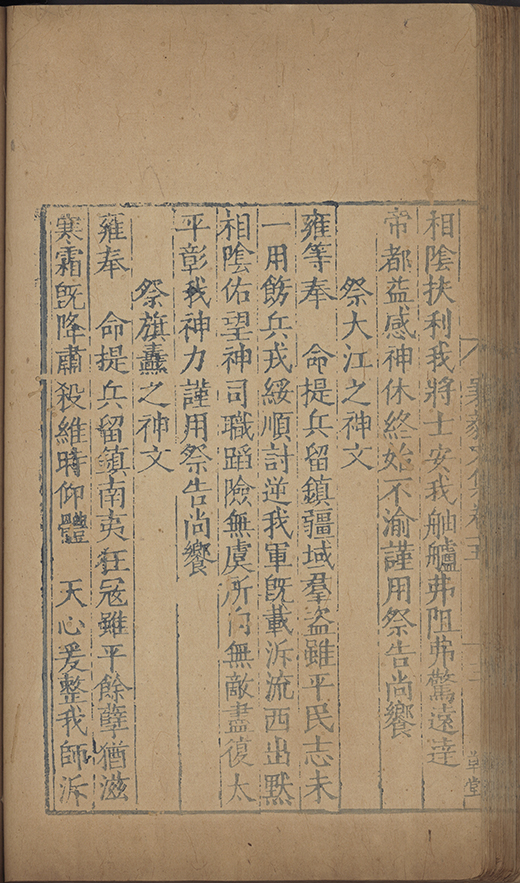 相陰扶利我將士安我舳艫弗阻弗驚遠達
帝都益感神休終始不渝謹用祭告尚饗
祭大江之神文
雍等奉　命提兵留鎮疆域羣盜雖平民志未
一用飭兵戎綏順討逆我軍旣載泝流西出黙
相隂佑望神司職蹈險無虞所向無敵盡復太
平彰我神力謹用祭告尚饗
祭旗纛之神文
雍奉　命提兵留鎮南夷狂寇雖平餘孽猶滋
寒霜旣降肅殺維時仰體　天心爰整我師泝